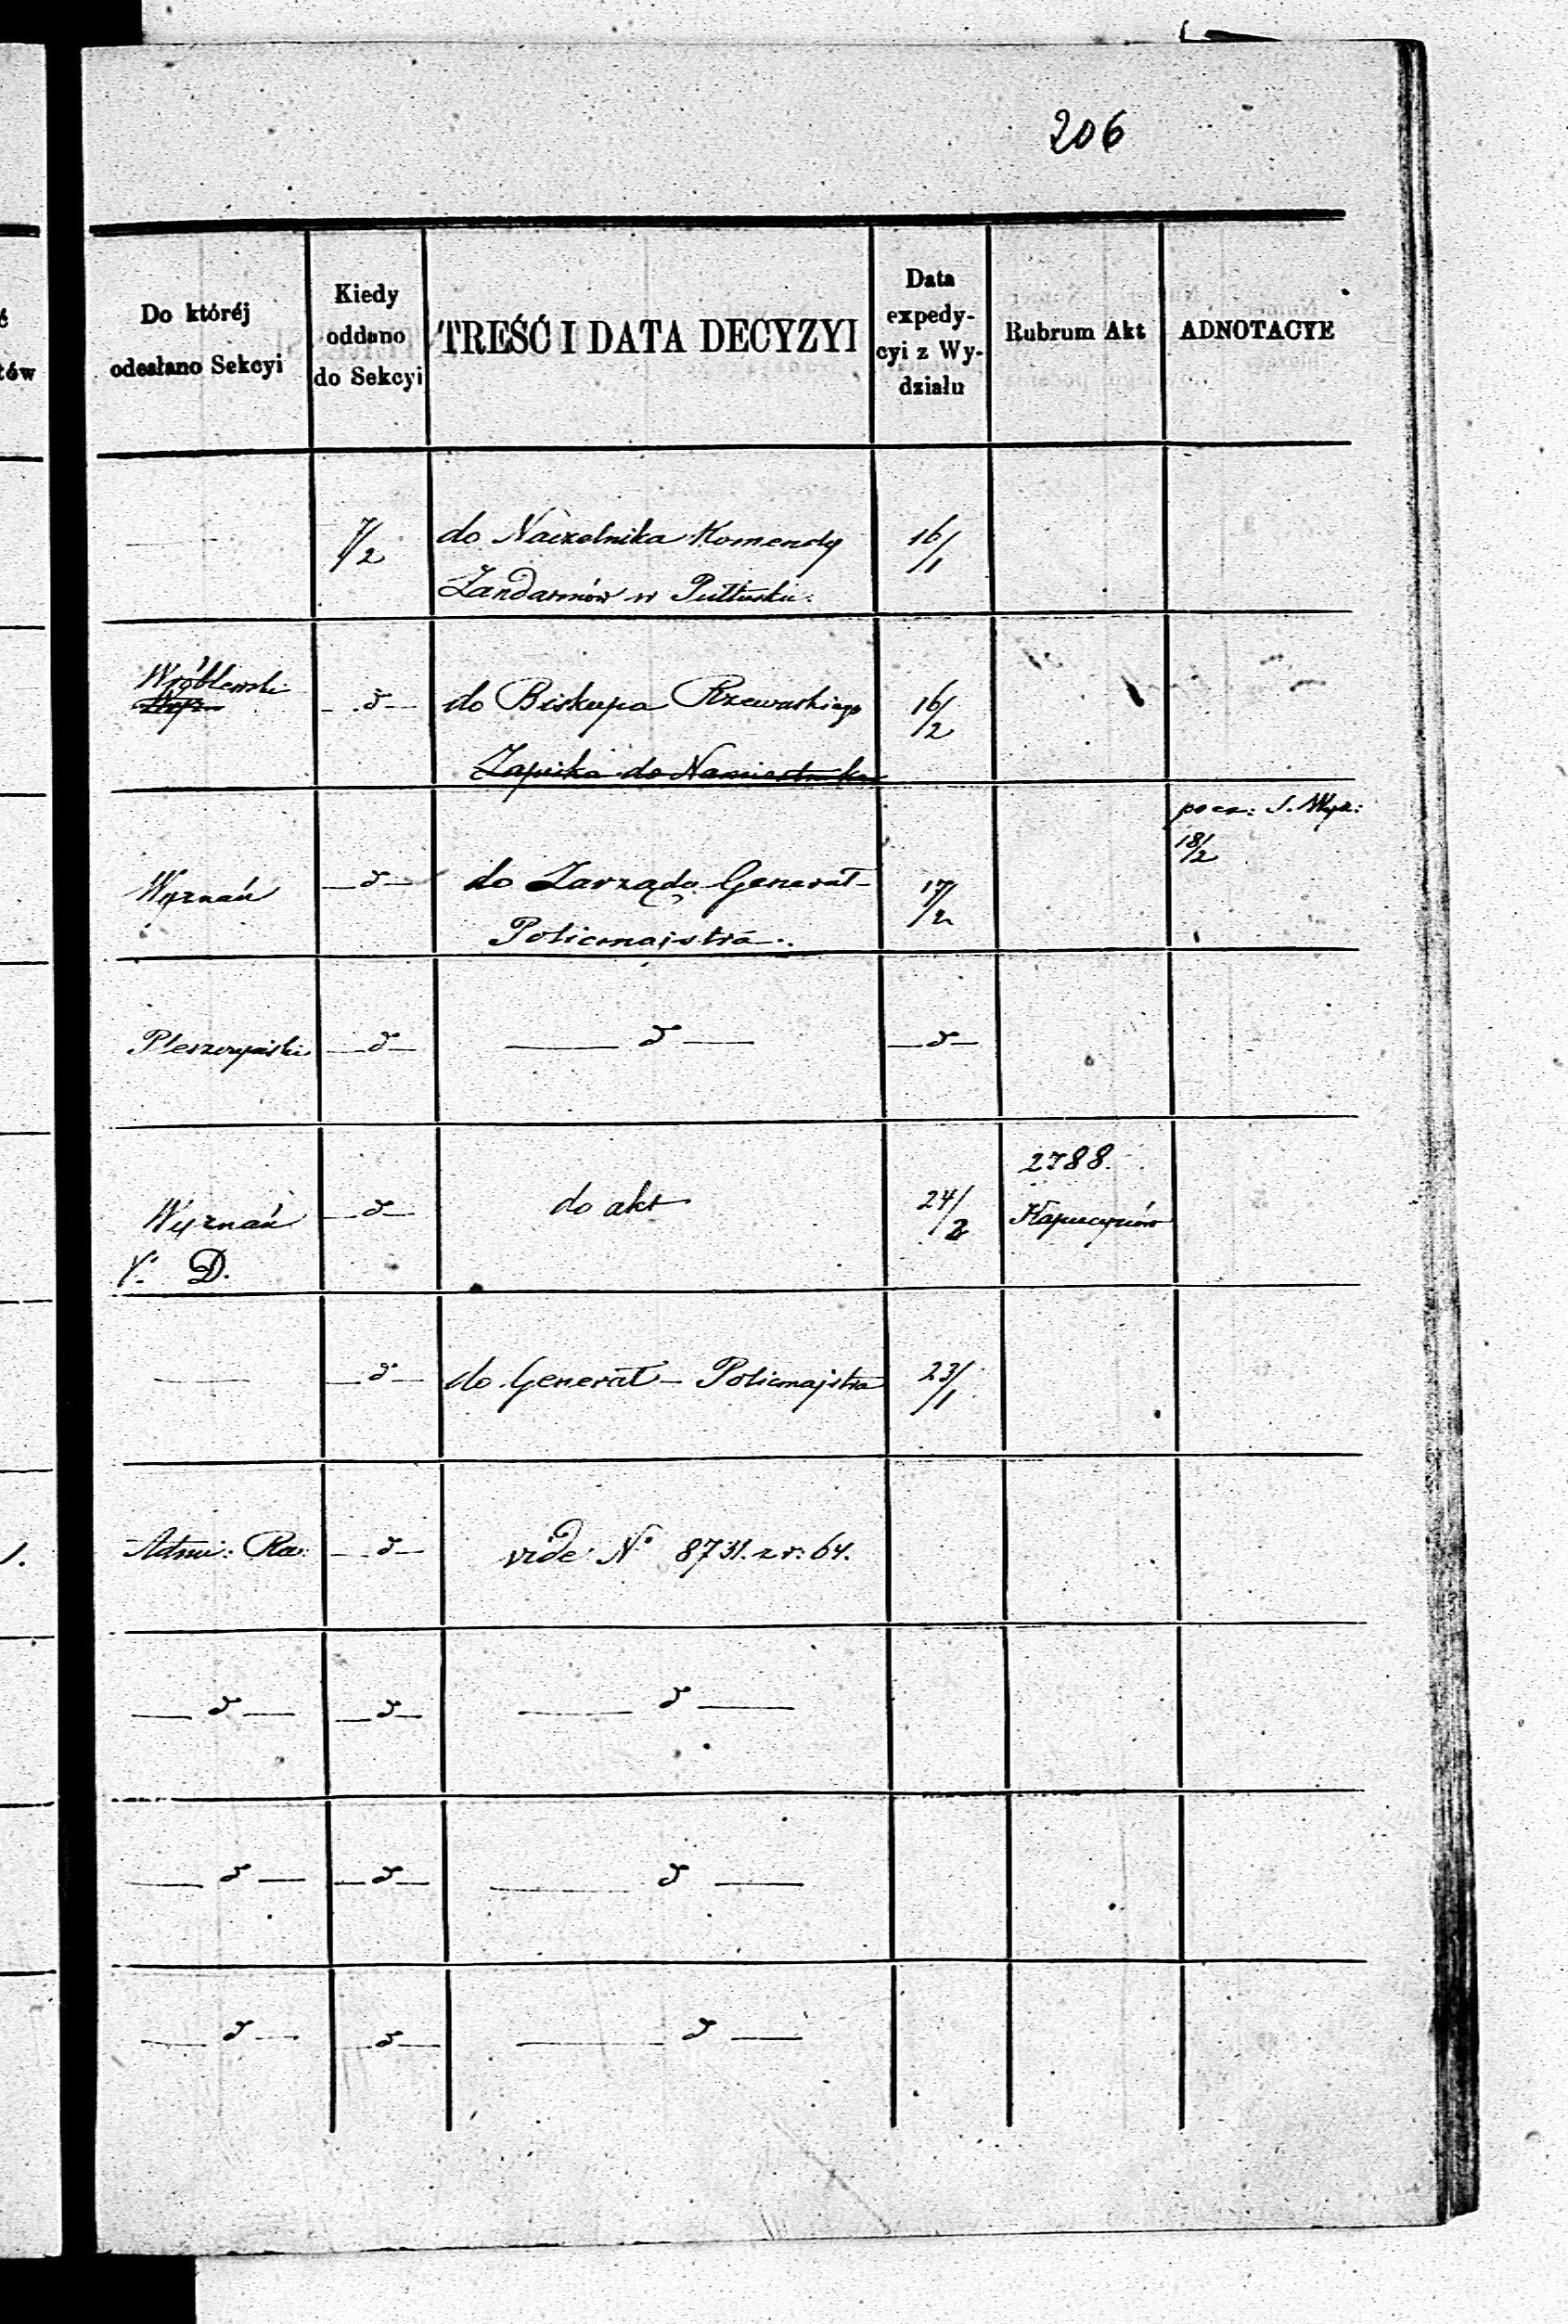 206
Do któréj
odesłano Sekcyi
Kiedy
oddano
do Sekcyi
TREŚĆ I DATA DECYZYI
Data
expedy-
cyi z Wy-
działu
Rubrum Akt
ADNOTACYE
ów
7/2
do Naczelnika Komendy
Żandarmów w Pułtusku.
16/1
Wróblewski
d
do Biskupa Rzewuskiego
Zapiska do Namiestnika
16/2
pocz: S. Wyz:
18/2
Wyznań
d
do Zarządu Generał-
Policmajstra
17/2
Pleszczyński
d
d
d
Wyznań
V. D.
d
do akt
24/2
2788.
Kapucynów
d
do Generał-Policmajstra
23/1
1.
Admi: Ra:
d
vide N° 8731. z r: 64.
d
d
d
d
d
d
d
d
d